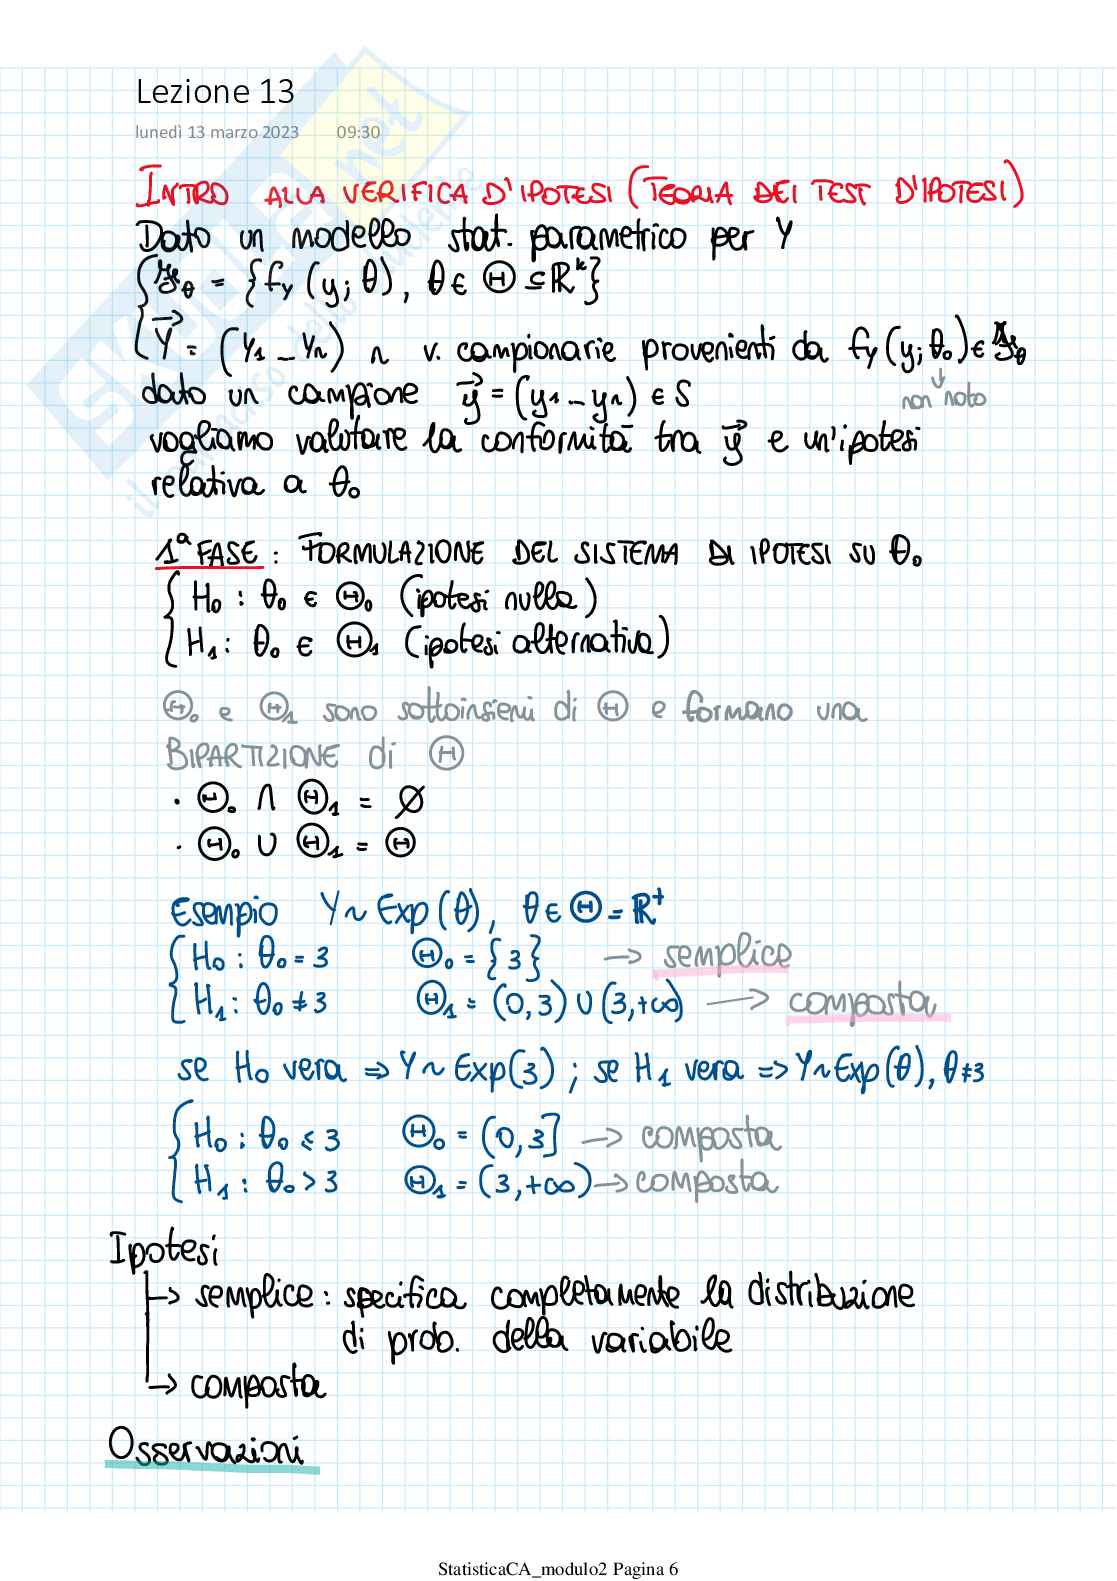 Lezione 13
lunedì 13 marzo 2023 09:30
INTRO ALLA VERIFICA D'IPOTESI (TEORIA DEI TEST D'IPOTESI)
Dato un modello stat. parametrico per Y
{ 𝓕θ = {fY (y; θ), θ ∈ Θ ⊆ ℝᵏ}
{ Y⃗ = (Y1 _ Yn) n v. campionarie provenienti da fY (y; θ0) ∈ 𝓕θ
dato un campione y⃗ = (y1 _ yn) ∈ S
↓ non noto
vogliamo valutare la conformità tra y⃗ e un'ipotesi
relativa a θ0
1ª FASE : FORMULAZIONE DEL SISTEMA DI IPOTESI SU θ0
{ H0 : θ0 ∈ Θ0 (ipotesi nulla)
{ H1 : θ0 ∈ Θ1 (ipotesi alternativa)
Θ0 e Θ1 sono sottoinsiemi di Θ e formano una
BIPARTIZIONE di Θ
· Θ0 ∩ Θ1 = ∅
· Θ0 ∪ Θ1 = Θ
Esempio Y ~ Exp (θ), θ ∈ Θ = ℝ⁺
{ H0 : θ0 = 3 Θ0 = {3} → semplice
{ H1 : θ0 ≠ 3 Θ1 = (0,3) ∪ (3,+∞) → composta
se H0 vera ⇒ Y ~ Exp(3) ; se H1 vera ⇒ Y ~ Exp(θ), θ ≠ 3
{ H0 : θ0 ≤ 3 Θ0 = (0,3] → composta
{ H1 : θ0 > 3 Θ1 = (3,+∞) → composta
Ipotesi
→ semplice : specifica completamente la distribuzione
di prob. della variabile
→ composta
Osservazioni
StatisticaCA_modulo2 Pagina 6